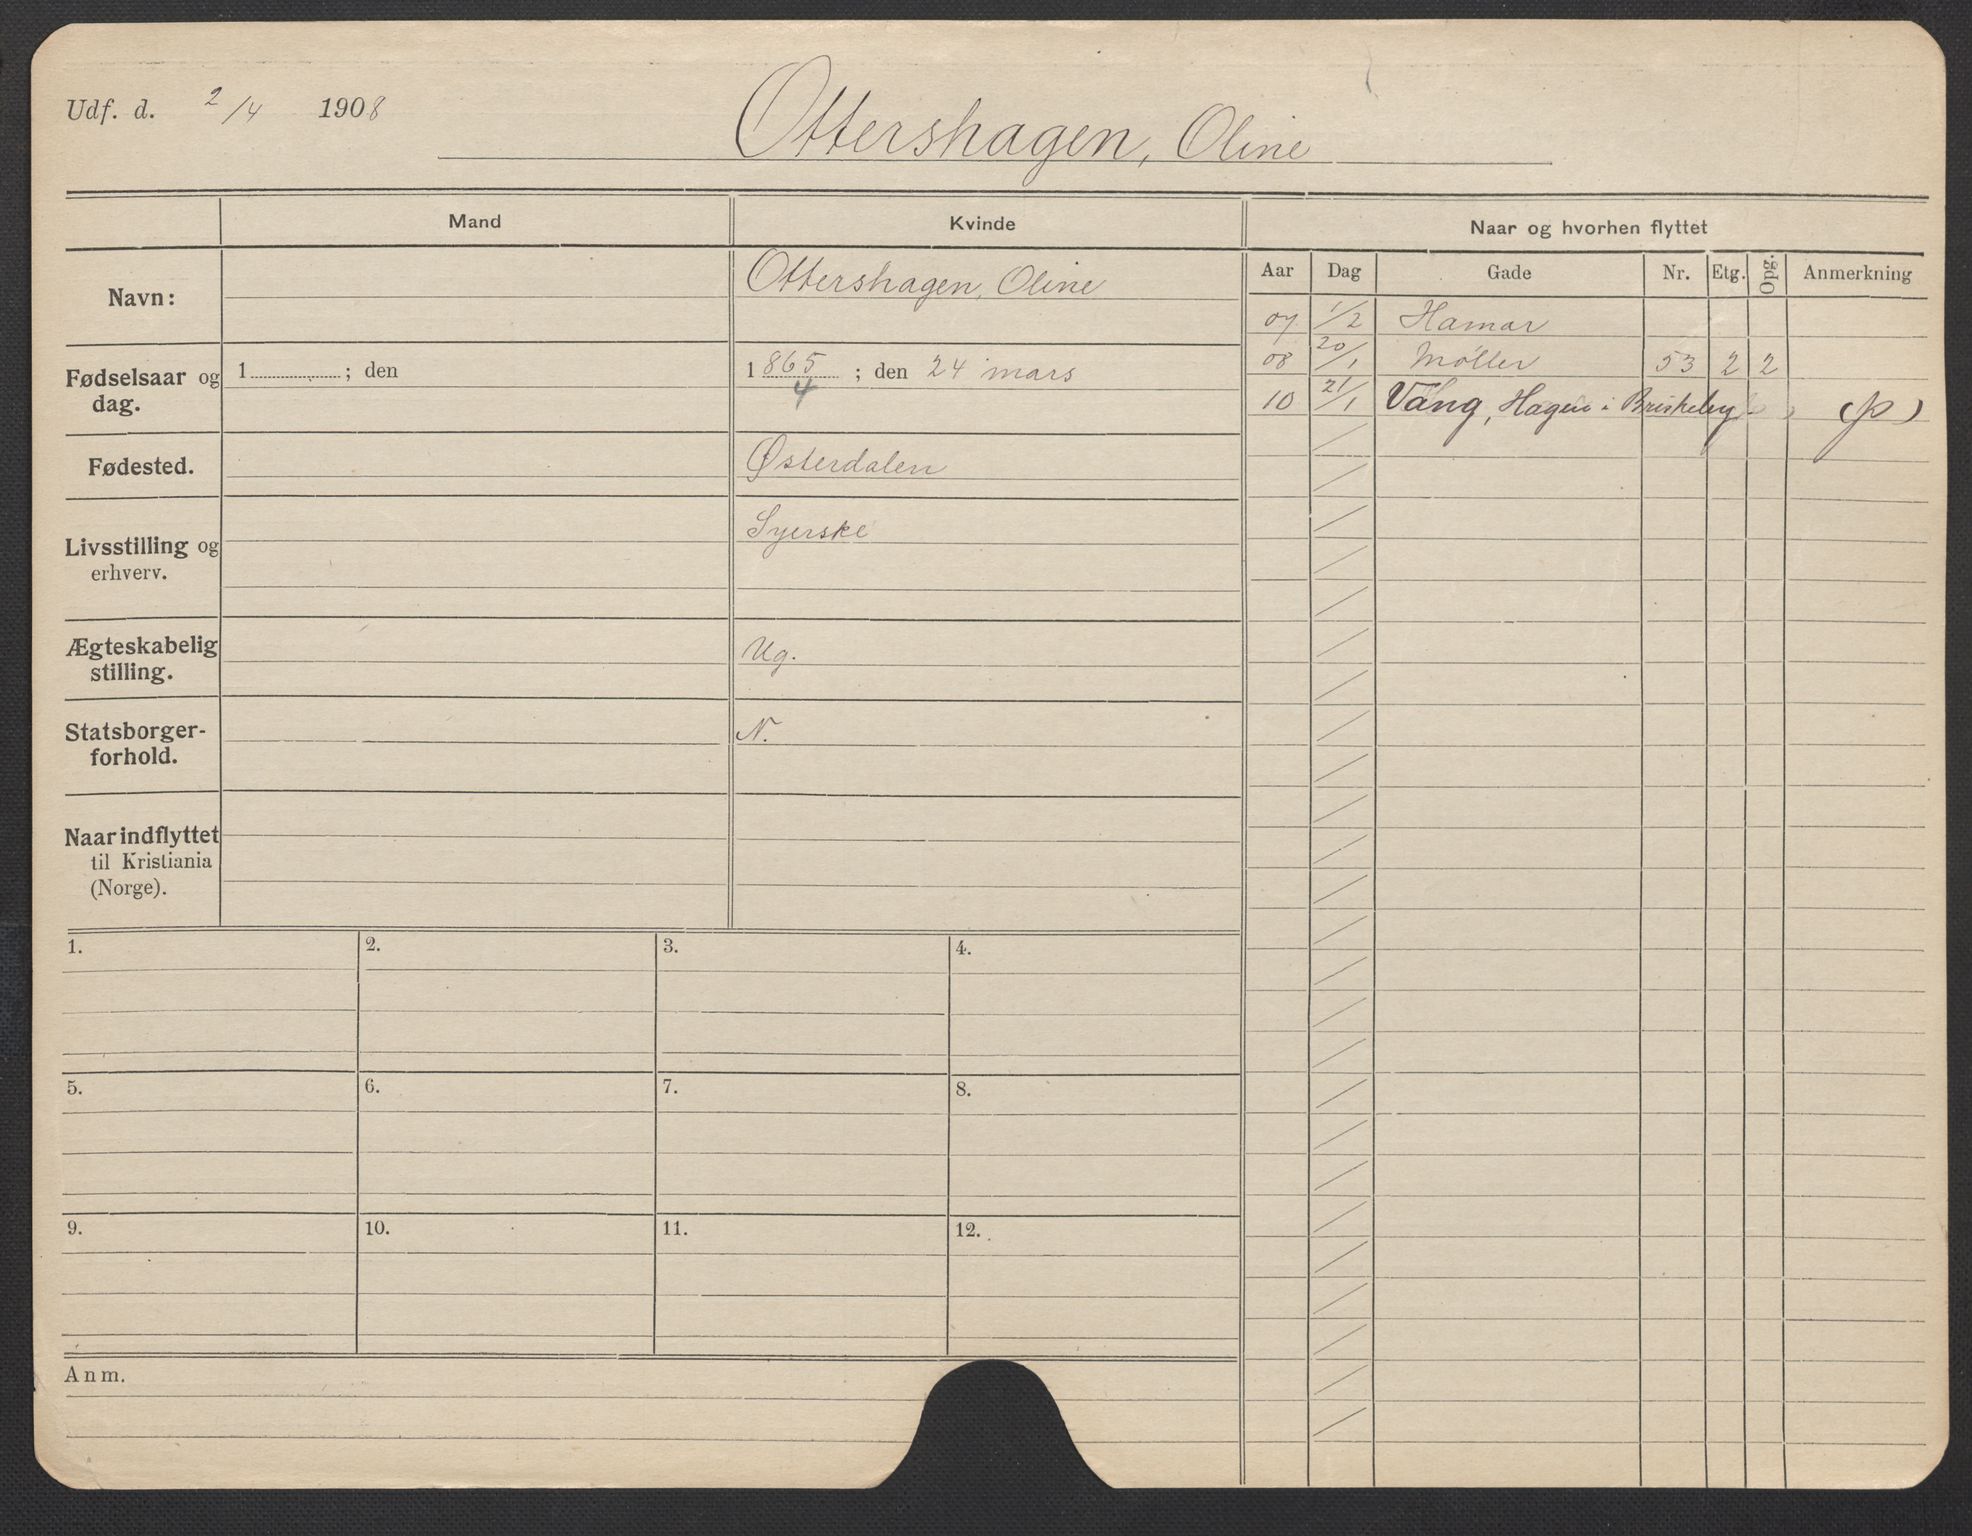 Udf. d. 2/4 1908
Ottershagen, Oline
Mand
Kvinde
Naar og hvorhen flyttet
Navn:
Ottershagen, Oline
Fødselsaar og dag.
1 ; den
1865 ; den 24 mars
4
Fødested.
Østerdalen
Livsstilling og erhverv.
Syerske
Ægteskabelig stilling.
Ug.
Statsborger-
forhold.
N.
Naar indflyttet
til Kristiania
(Norge).
Aar Dag Gade Nr. Etg. Opg. Anmerkning
07 1/2 Hamar
08 20/1 Møller 53 2 2
10 21/1 Vang, Hagen i Briskeby (p)
1. 2. 3. 4.
5. 6. 7. 8.
9. 10. 11. 12.
Anm.